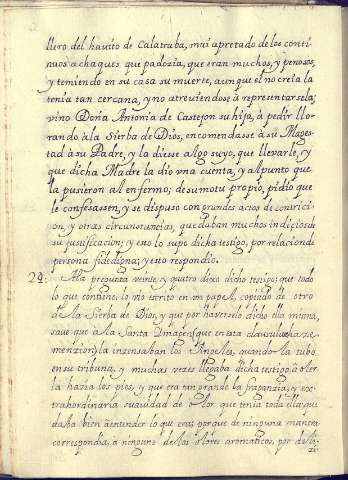 llero del hauito de Calatraba, mui apretado de los conti-
nuos achaques que padezia, que eran muchos, y penosos,
y temiendo en su casa su muerte, aunque el no creia la
tenia tan cercana, y no atreviendose à representarsela;
vino Doña Antonia de Castejon su hija, à pedir llo-
rando à la Sierba de Dios, encomendasse à su Mages-
tad à su Padre, y la diesse algo suyo, que llevarle, y
que dicha Madre la dio vna cuenta, y al punto que
la pusieron al enfermo, de su motu propio, pidio que
le confesassen, y se dispuso con grandes actos de contrici-
on, y otras circunstancias, que daban muchos indicios de
su justificacion; y esto lo supo dicha testigo, por relacion de
persona fidedigna; y esto respondio.
24. A la pregunta veinte, y quatro dixo dicho testigo; que todo
lo que contiene, lo vio escrito en un papel, copiado de otro
de la Sierba de Dios, y que por haverselo dicho ella misma,
save que à la Santa Imagen (que en esta clausula haze
menzion) la inzensaban los Angeles, quando la tubo
en su tribuna, y muchas vezes llegaba dicha testigo à oler
la hazia los pies, y que era tan grande la fragranzia, y ex-
trahordinaria suavidad de olor que tenia toda ella, que
daba bien à entender lo que era; porque de ninguna manera
correspondia à ninguno de los olores aromaticos, por de li-